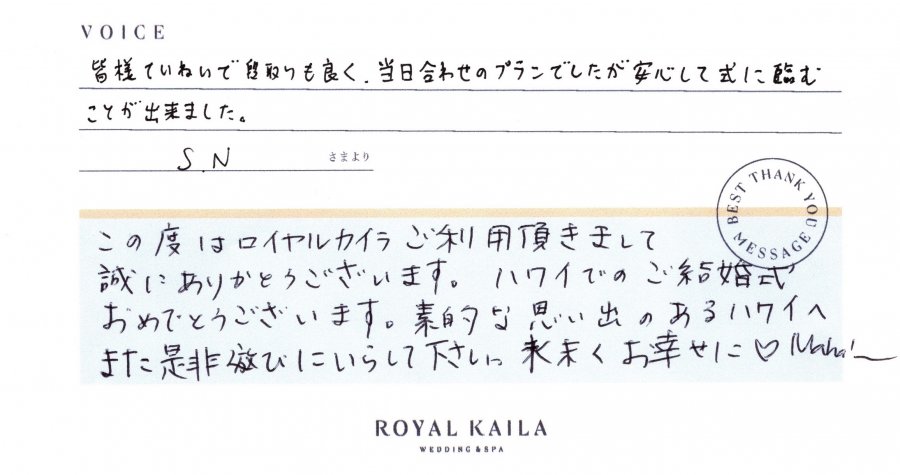 VOICE
皆様ていねいで段取りも良く、当日合わせのプランでしたが安心して式に臨む
ことが出来ました。
S.N さまより
BEST THANK YOU MESSAGE
この度はロイヤルカイラご利用頂きまして
誠にありがとうございます。ハワイでのご結婚式
おめでとうございます。素的な思い出のあるハワイへ
また是非遊びにいらして下さい。末末くお幸せに♡
ROYAL KAILA
WEDDING & SPA